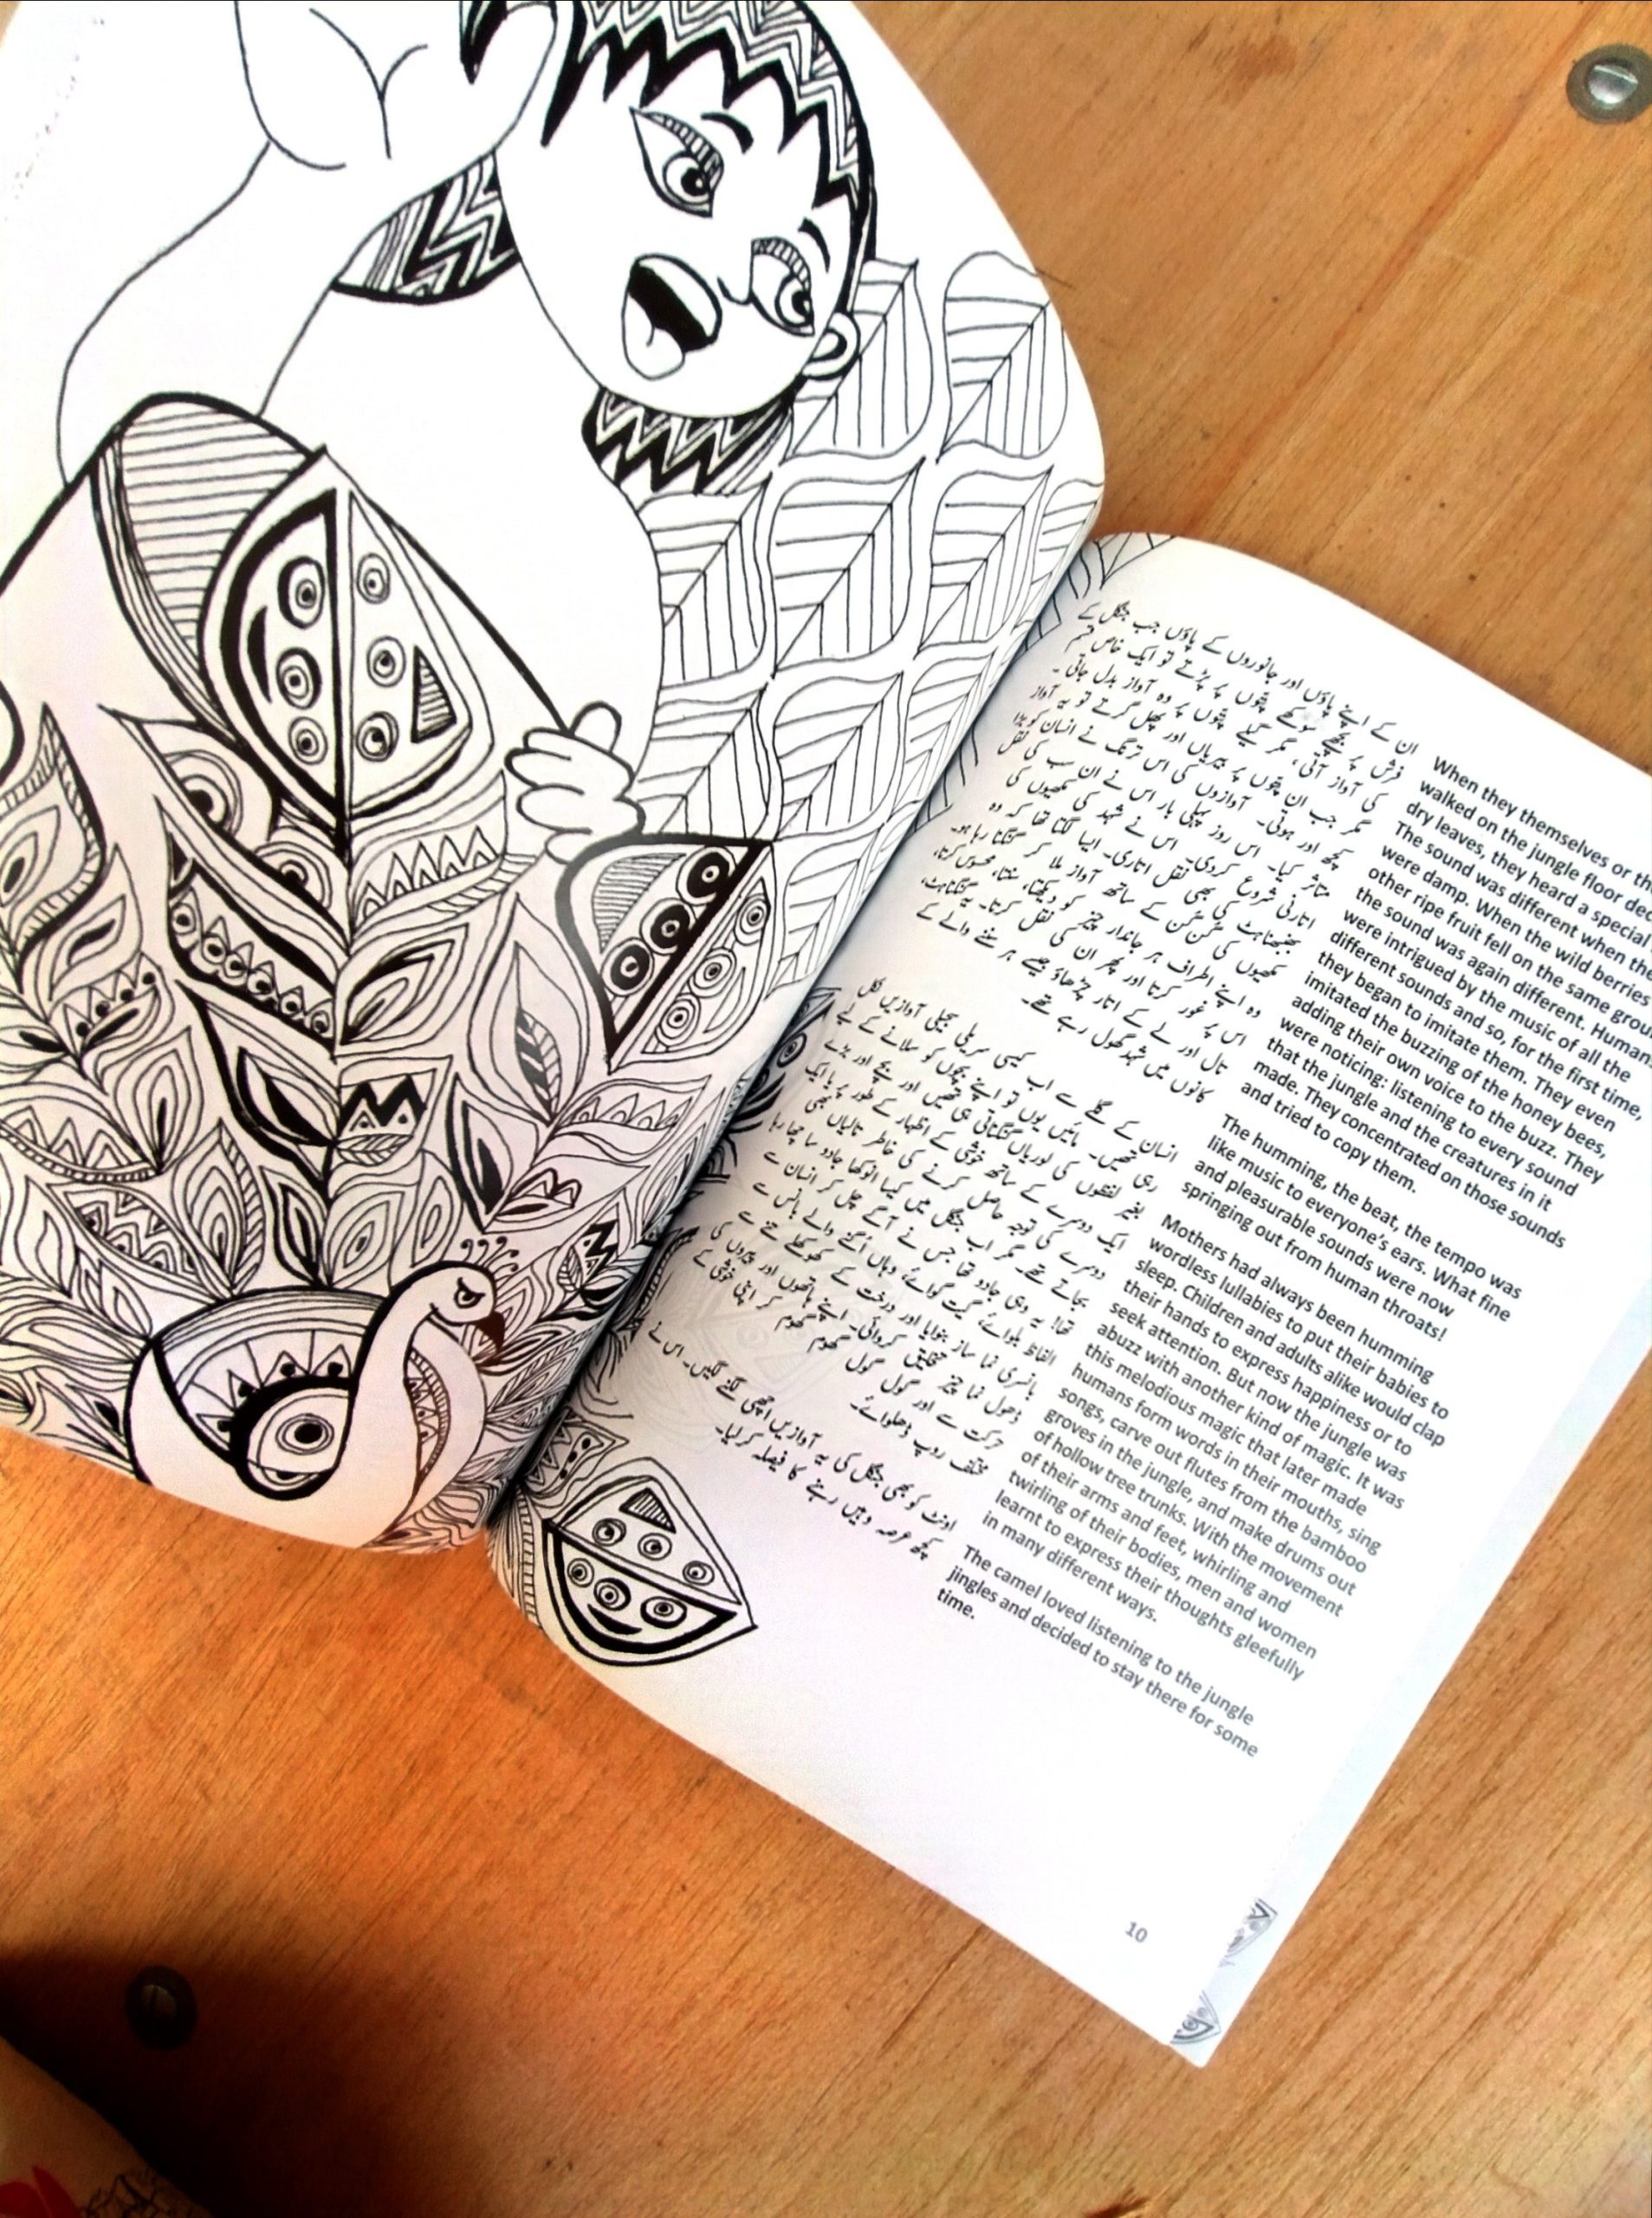 ان کے اپنے پاؤں اور جانوروں کے پاؤں جب جنگل کے
فرش پر بچھے سوکھے پتوں پر پڑتے تو ایک خاص قسم
کی آواز آتی، مگر گیلے پتوں پر وہ آواز بدل جاتی۔
مگر جب ان پتوں پر بیریاں اور پھل گرتے تو یہ آواز
کچھ اور ہوتی۔ آوازوں کی اس ترنگ نے انسان کو بڑا
متاثر کیا۔ اس روز پہلی بار اس نے ان سب کی نقل
اتارنی شروع کردی۔ اس نے شہد کی مکھیوں کی
بھنبھناہٹ کی بھی نقل اتاری۔ ایسا لگتا تھا کہ وہ
مکھیوں کی گھن گھن کے ساتھ آواز ملا کر گنگنا رہا ہو۔
وہ اپنے اطراف ہر جاندار چیز کو دیکھتا، سنتا، محسوس کرتا،
اس پر غور کرتا اور پھر ان کی نقل کرتا۔ یہ گنگناہٹ،
تال اور لے کے اتار چڑھاؤ جیسے ہر سننے والے کے
کانوں میں شہد گھول رہے تھے۔
انسان کے گلے سے اب کیسی سریلی بھلی آوازیں نکل
رہی تھیں۔ مائیں یوں تو اپنے بچوں کو سلانے کے لیے
بغیر لفظوں کی لوریاں گنگناتی ہی تھیں اور بچے اور بڑے
ایک دوسرے کے ساتھ خوشی کے اظہار کے طور پر یا ایک
دوسرے کی توجہ حاصل کرنے کی خاطر تالیاں بھی
بجاتے تھے۔ مگر اب جنگل میں کیسا انوکھا جادو سا چھا رہا
تھا! یہ وہی جادو تھا جس نے آگے چل کر انسان سے
الفاظ بلوائے، گیت گوائے، وہاں اُگنے والے بانس سے
بانسری نما ساز بنوایا اور درخت کے کھوکھلے تنے سے
ڈھول نما چیز تخلیق کروائی۔ اپنے ہاتھوں اور پیروں کی
حرکت سے اور گول گول گھوم گھوم کر اپنی خوشی کے
مختلف روپ
اونٹ کو بھی جنگل کی یہ آوازیں اچھی لگنے لگیں۔ اس نے
کچھ عرصہ وہیں رہنے کا فیصلہ کر لیا۔
When they themselves or
walked on the jungle floor
dry leaves, they heard a special
The sound was different when
were damp. When the wild berries
other ripe fruit fell on the same
the sound was again different.
were intrigued by the music of all the
different sounds and so, for the first time,
they began to imitate them. They even
imitated the buzzing of the honey bees,
adding their own voice to the buzz. They
were noticing: listening to every sound
that the jungle and the creatures in it
made. They concentrated on those sounds
and tried to copy them.
The humming, the beat, the tempo was
like music to everyone's ears. What fine
and pleasurable sounds were now
springing out from human throats!
Mothers had always been humming
wordless lullabies to put their babies to
sleep. Children and adults alike would clap
their hands to express happiness or to
seek attention. But now the jungle was
abuzz with another kind of magic. It was
this melodious magic that later made
humans form words in their mouths, sing
songs, carve out flutes from the bamboo
groves in the jungle, and make drums out
of hollow tree trunks. With the movement
of their arms and feet, whirling and
twirling of their bodies, men and women
learnt to express their thoughts gleefully
in many different ways.
The camel loved listening to the jungle
jingles and decided to stay there for some
time.
10